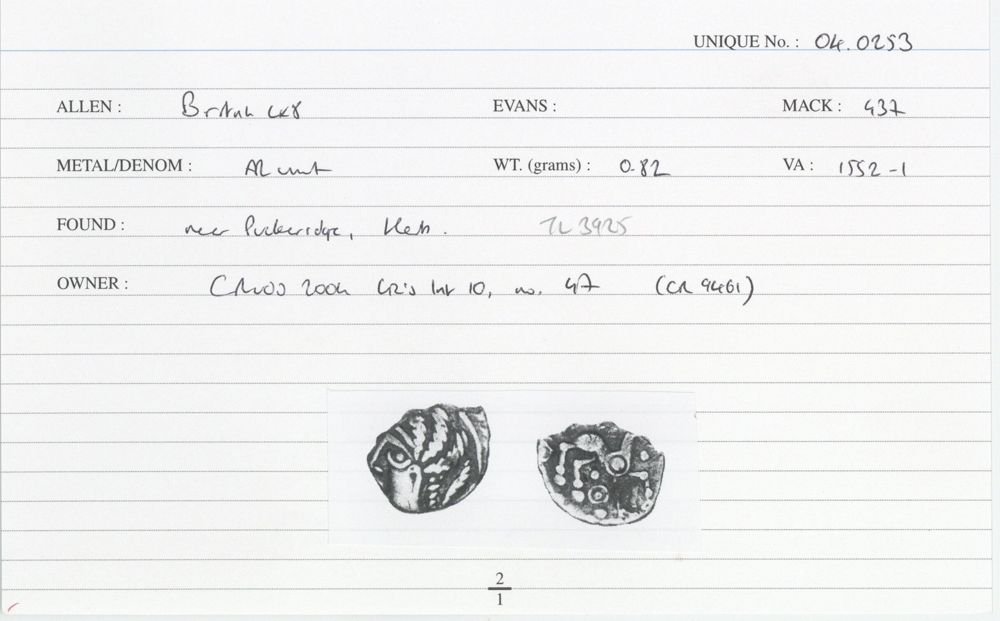 UNIQUE No. : 04.0253
ALLEN : British LX8 EVANS : MACK : 437
METAL/DENOM : AR unit WT. (grams) : 0.82 VA : 1552-1
FOUND : near Puckeridge, Herts. TL 3925
OWNER : 2004 no. 47 (CR 9461)
2
1